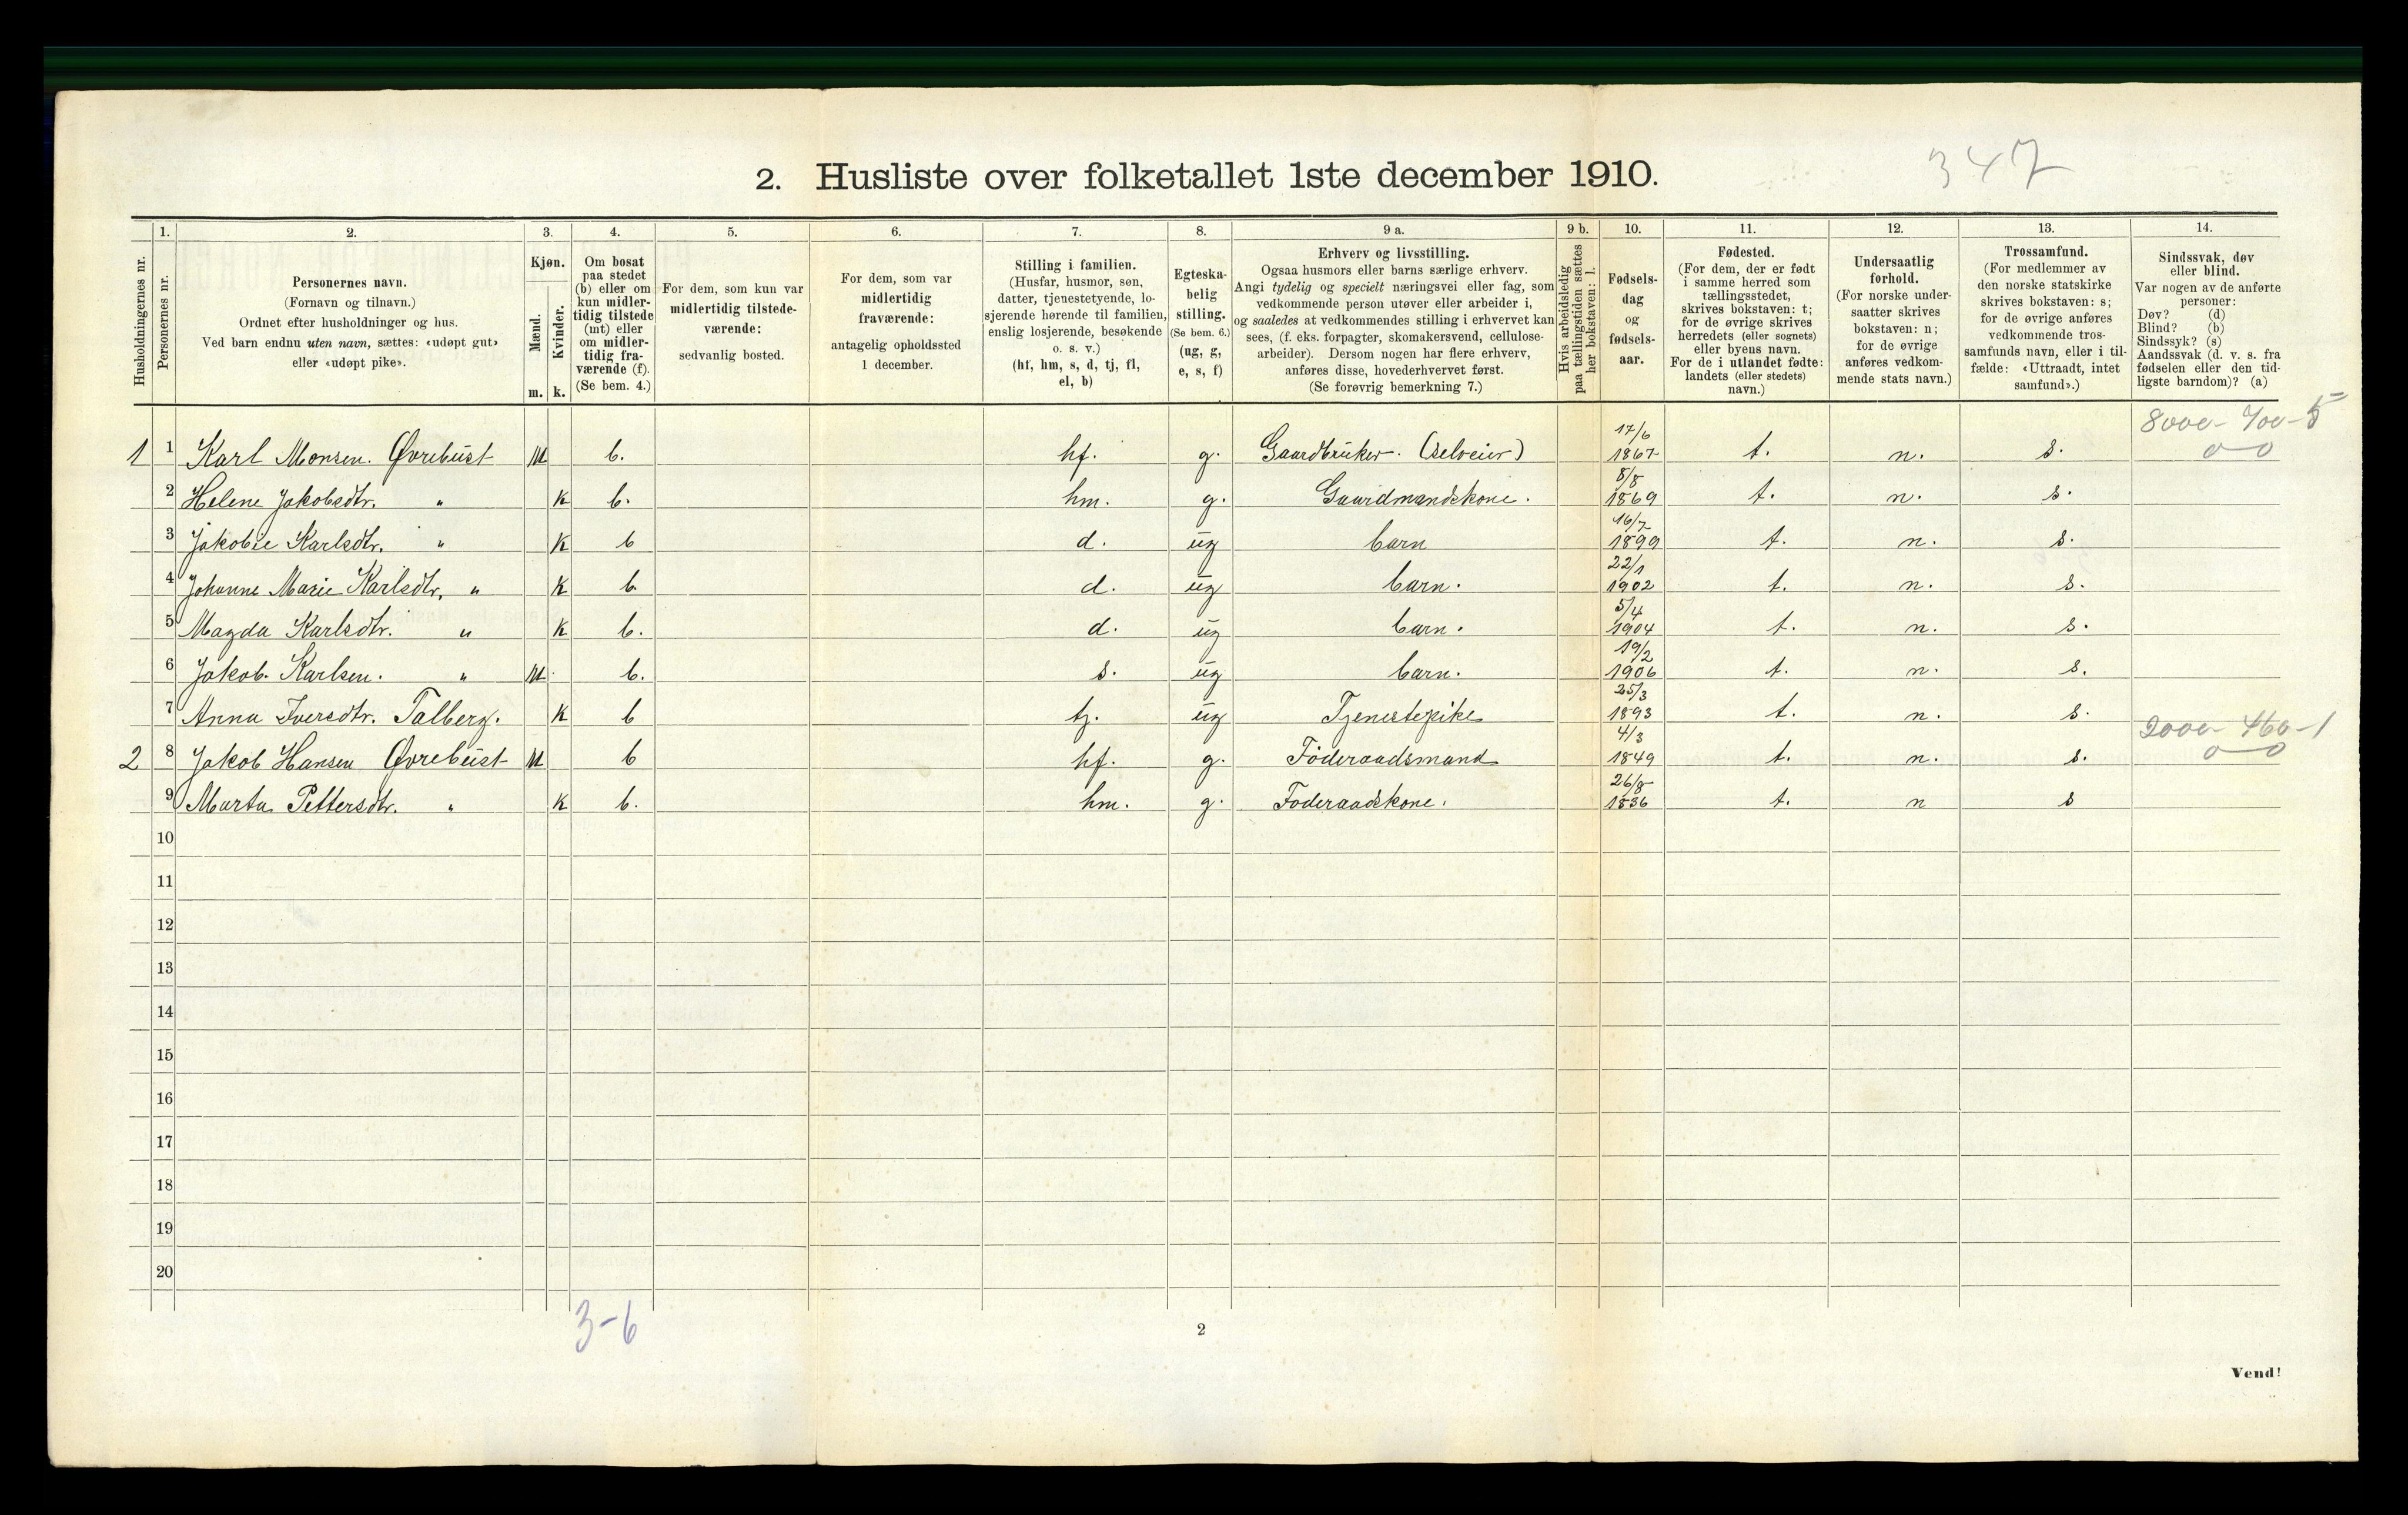 347
2. Husliste over folketallet 1ste december 1910.
1. 2. 3. 4. 5. 6. 7. 8. 9 a. 9 b. 10. 11. 12. 13. 14.
Husholdningernes nr.
Personernes nr.
Personernes navn.
(Fornavn og tilnavn.)
Ordnet efter husholdninger og hus.
Ved barn endnu uten navn, sættes: «udøpt gut»
eller «udøpt pike».
Kjøn.
Mænd.
Kvinder.
m. k.
Om bosat
paa stedet
(b) eller om
kun midler-
tidig tilstede
(mt) eller
om midler-
tidig fra-
værende (f).
(Se bem. 4.)
For dem, som kun var
midlertidig tilstede-
værende:
sedvanlig bosted.
For dem, som var
midlertidig
fraværende:
antagelig opholdssted
1 december.
Stilling i familien.
(Husfar, husmor, søn,
datter, tjenestetyende, lo-
sjerende hørende til familien,
enslig losjerende, besøkende
o. s. v.)
(hf, hm, s, d, tj, fl,
el, b)
Egteska-
belig
stilling.
(Se bem. 6.)
(ug, g,
e, s, f)
Erhverv og livsstilling.
Ogsaa husmors eller barns særlige erhverv.
Angi tydelig og specielt næringsvei eller fag, som
vedkommende person utøver eller arbeider i,
og saaledes at vedkommendes stilling i erhvervet kan
sees, (f. eks. forpagter, skomakersvend, cellulose-
arbeider). Dersom nogen har flere erhverv,
anføres disse, hovederhvervet først.
(Se forøvrig bemerkning 7.)
Hvis arbeidsledig
paa tællingstiden sættes
her bokstaven: l.
Fødsels-
dag
og
fødsels-
aar.
Fødested.
(For dem, der er født
i samme herred som
tællingsstedet,
skrives bokstaven: t;
for de øvrige skrives
herredets (eller sognets)
eller byens navn.
For de i utlandet fødte:
landets (eller stedets)
navn.)
Undersaatlig
forhold.
(For norske under-
saatter skrives
bokstaven: n;
for de øvrige
anføres vedkom-
mende stats navn.)
Trossamfund.
(For medlemmer av
den norske statskirke
skrives bokstaven: s;
for de øvrige anføres
vedkommende tros-
samfunds navn, eller i til-
fælde: «Uttraadt, intet
samfund».)
Sindssvak, døv
eller blind.
Var nogen av de anførte
personer:
Døv? (d)
Blind? (b)
Sindssyk? (s)
Aandssvak (d. v. s. fra
fødselen eller den tid-
ligste barndom)? (a)
8000- 700-5
1 1 Karl Monsen. Øvrebust M b. hf. g. Gaardbruker. (selveier) 17/6 1867 t. n. s. 0-0
2 Helene Jakobsdtr. " K b. hm. g. Gaardmandskone. 8/8 1869 t. n. s.
3 Jakobie Karlsdtr. " K b d. ug barn 16/7 1899 t. n. s.
4 Johanne Marie Karlsdtr, " K b. d. ug barn. 22/1 1902 t. n. s.
5 Magda Karlsdtr. " K b. d. ug barn. 5/4 1904 t. n. s.
6 Jakob Karlsen. " M b. s. ug barn. 19/2 1906 t. n. s.
7 Anna Iversdtr. Talberg. K b tj. ug Tjenestepike 25/3 1893 t. n. s.
2000- 460-1
2 8 Jakob Hansen Øvrebust M b hf. g. Føderaadsmand 4/3 1849 t. n. s. 0-0
9 Marta Pettersdtr. " K b. hm. g. Føderaadskone. 26/8 1836 t. n s
10
11
12
13
14
15
16
17
18
19
20
3-6
2
Vend!